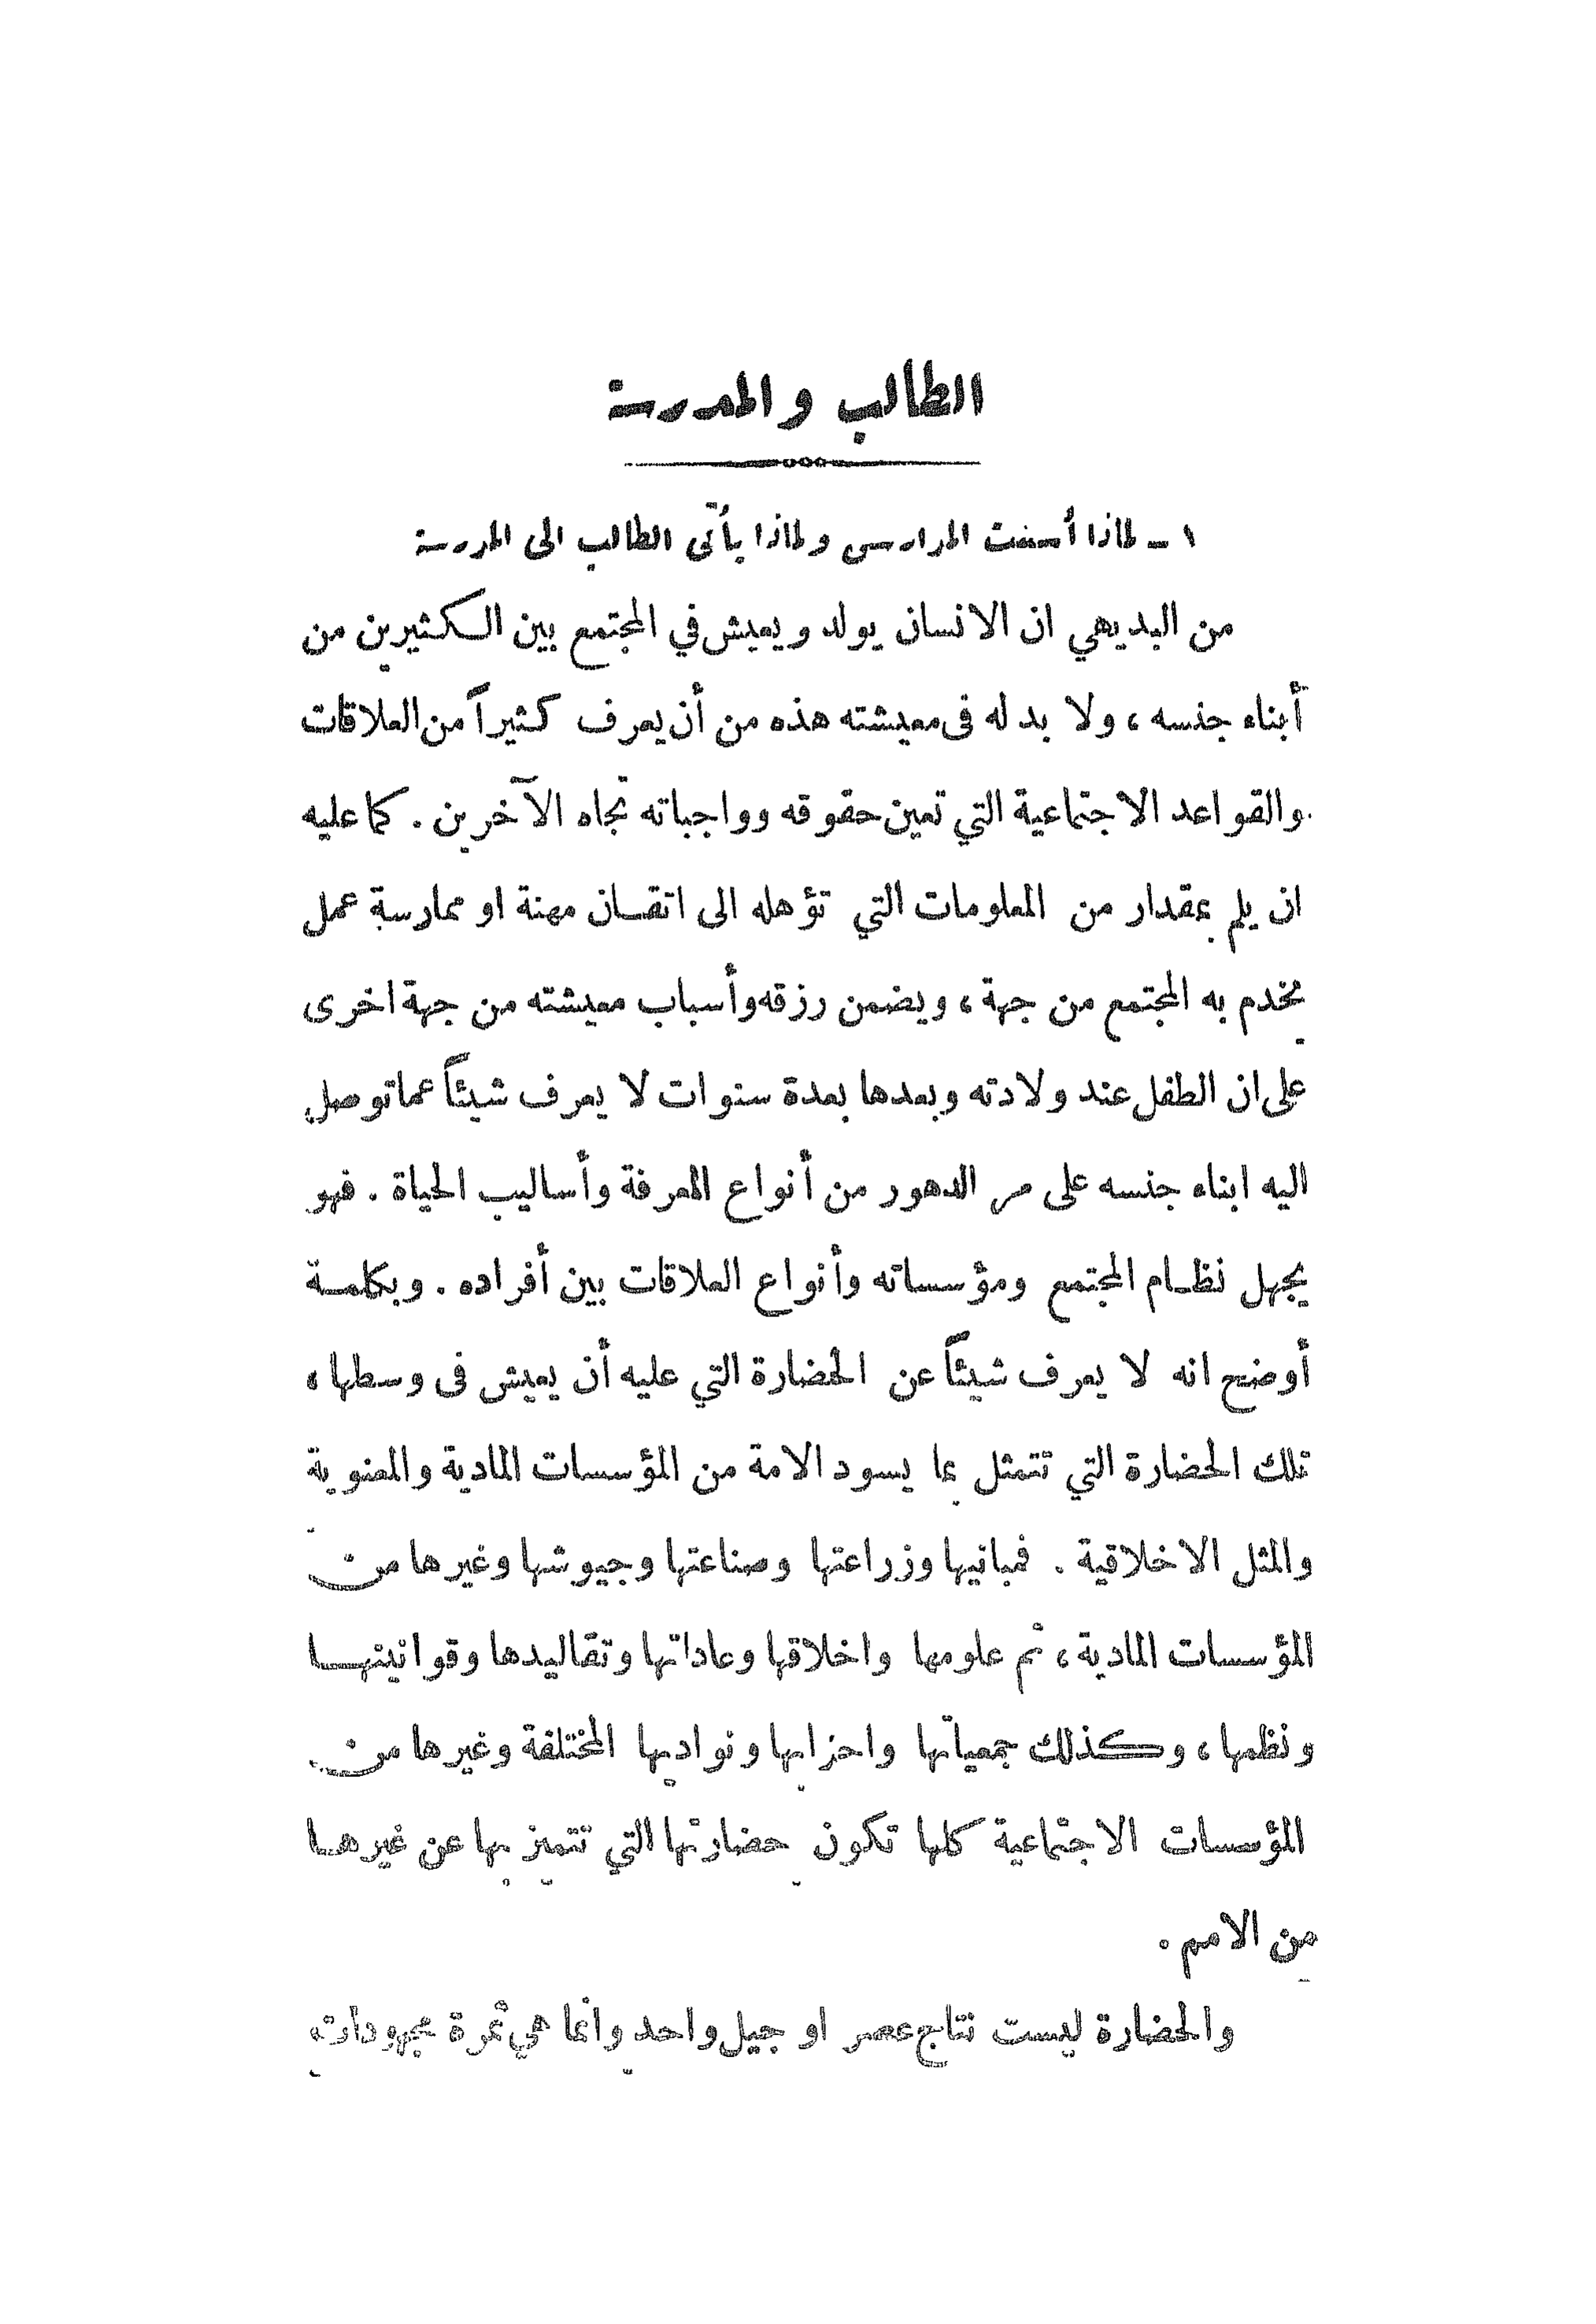 الطالب والمدرسة
١ ـ لماذا أسست المدارس ولماذا يأتى الطالب الى المدرسة
من البديهي ان الانسان يولد ويعيش في المجتمع بين الكثيرين من
أبناء جنسه ، ولا بد له فى معيشته هذه من أن يعرف كثيراً من العلاقات
والقواعد الاجتماعية التي تعين حقوقه وواجباته تجاه الآخرين . كما عليه
ان يلم بمقدار من المعلومات التي تؤهله الى اتقان مهنة او ممارسة عمل
يخدم به المجتمع من جهة ، ويضمن رزقه وأسباب معيشته من جهة اخرى
على ان الطفل عند ولادته وبعدها بعدة سنوات لا يعرف شيئاً عما توصل
اليه ابناء جنسه على مر الدهور من أنواع المعرفة وأساليب الحياة . فهو
يجهل نظام المجتمع ومؤسساته وأنواع العلاقات بين أفراده . وبكلمة
أوضح انه لا يعرف شيئاً عن الحضارة التي عليه أن يعيش فى وسطها ،
تلك الحضارة التي تتمثل بما يسود الامة من المؤسسات المادية والمعنوية
والمثل الاخلاقية . فمبانيها وزراعتها وصناعتها وجيوشها وغيرها من
المؤسسات المادية ، ثم علومها واخلاقها وعاداتها وتقاليدها وقوانينها
ونظمها ، وكذلك جمعياتها واحزابها ونواديها المختلفة وغيرها من
المؤسسات الاجتماعية كلها تكون حضارتها التي تتميز بها عن غيرها
من الامم .
والحضارة ليست نتاج عصر او جيل واحد وانما هي ثمرة مجهودات